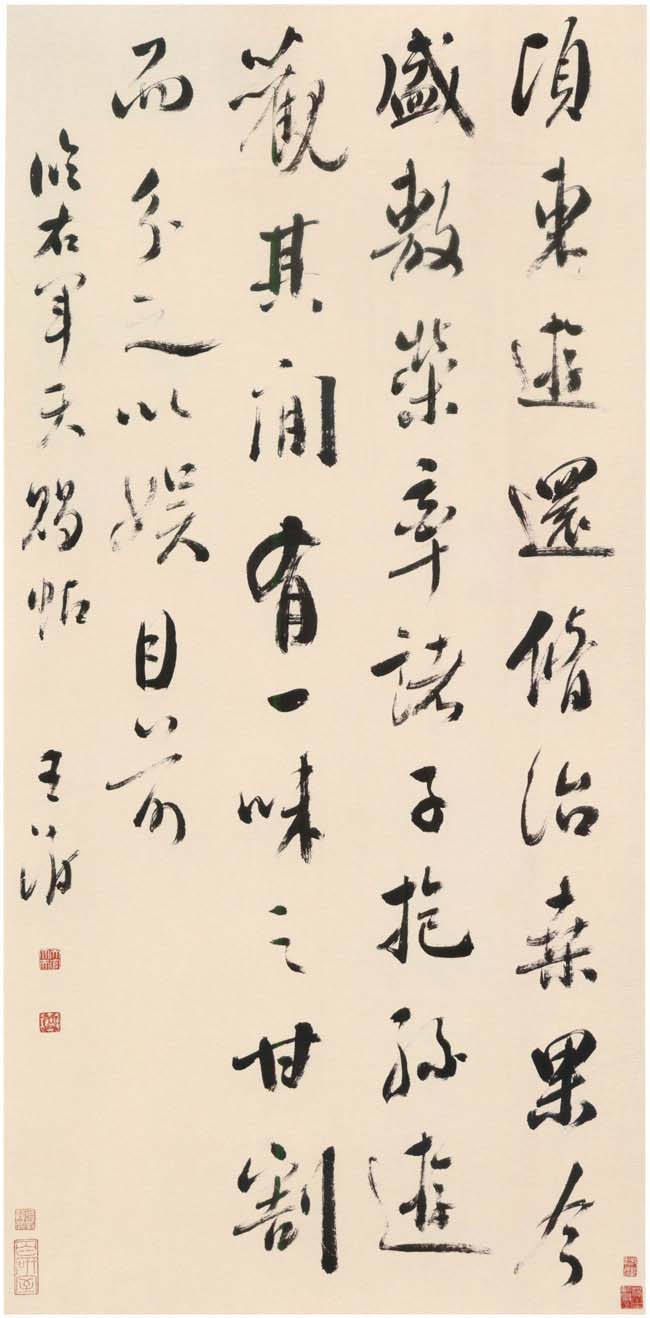 頃東遊還脩治桑果今
盛敷榮率諸子抱孫遊
觀其間有一味之甘割
而分之以娛目前
臨右軍天賜帖 王